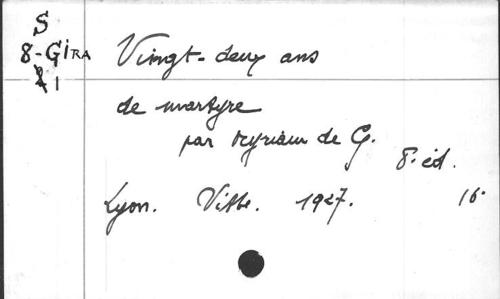 S
8-GIRA
1
Vingt-deux ans
de martyre
par Myriam de G.
8. éd.
Lyon. Vitte. 1927. 16.